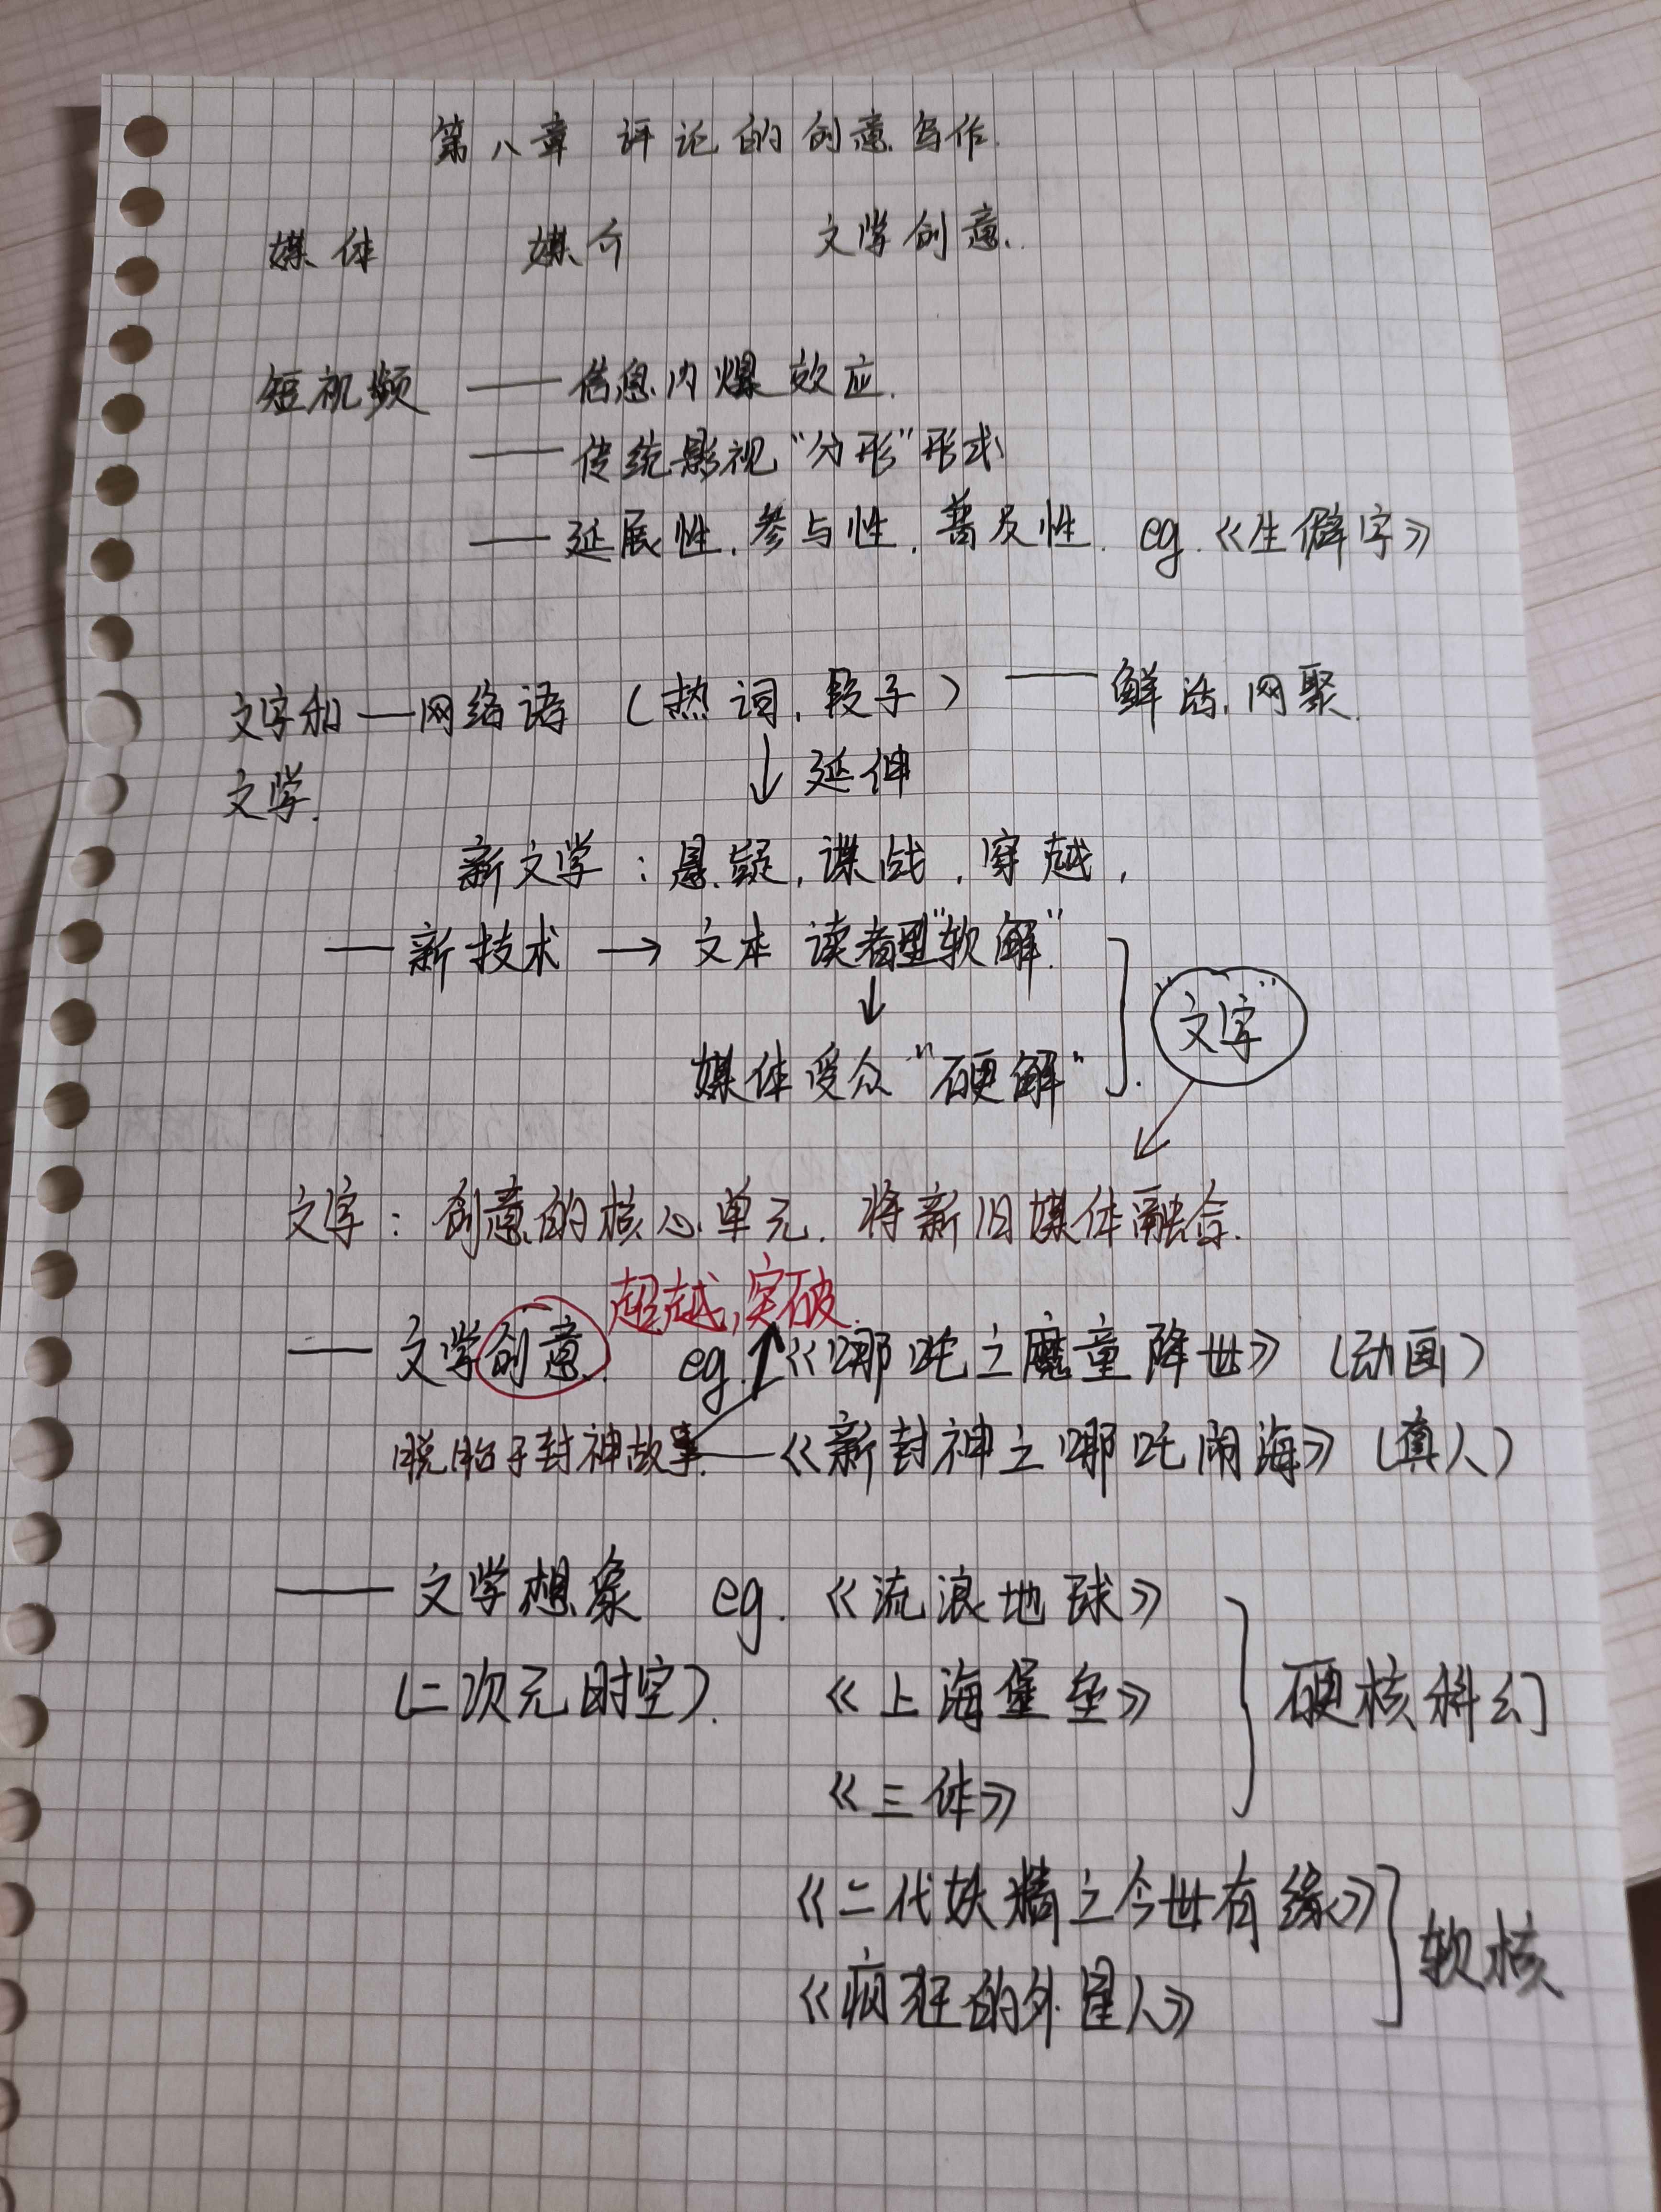 第八章 评论的创意写作.
媒体 媒介 文学创意.
短视频 —— 信息内爆效应.
—— 传统影视“分形”形式
—— 延展性.参与性.普及性. eg.《生僻字》
文字和 —— 网络语 (热词,段子) —— 鲜活,网聚.
↓ 延伸
文学.
新文学:悬疑,谍战,穿越,
—— 新技术 → 文本 读者型“软解”
↓
“文字”
媒体受众“硬解”
文字: 创意的核心单元. 将新旧媒体融合.
超越,突破.
—— 文学创意. eg.《哪吒之魔童降世》(动画)
脱胎于封神故事 ——《新封神之哪吒闹海》(真人)
—— 文学想象 eg.《流浪地球》
(二次元时空). 《上海堡垒》 硬核科幻
《三体》
《二代妖精之今世有缘》
软核
《疯狂的外星人》